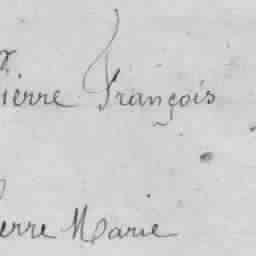 ierre François
erre Marie